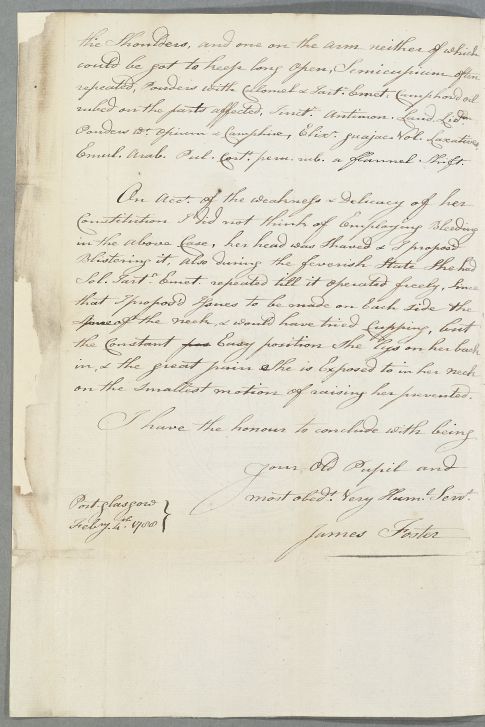 the Shoulders, and one on the arm neither of which
could be got to keep long open, Semicupium often
repeated, Pouders with Calomel & Tart. Emet. Camphord oil
rubed on the parts affected, Tinct. Antimon. Laud. Liq.
Pouders wt. Opium & Camphire, Elixr. guajac. Vol. Laxatives,
Emul. Arab. Pul. Cort. peru. rub. a flannel Shift.
On Acct. of the weakness & Delicacy of her
Constitution I did not think of Employing Bleeding
in the above Case, her head was Shaved & I proposd
Blistering it, also during the feverish State She had
Sol. Tartr. Emet. repeated till it operated freely, Since
that I proposd Issues to be made on Each Side the
of the neck, & would have tried Cupping, but
the Constant Easy position She lys on her back
in, & the great pain She is Exposed to in her neck
on the Smallest motion of raising her prevented.
I have the honour to conclude with being
Your Old Pupil and
most obedt. Very Humle. Servt.
Port glasgow
Feby. 4th. 1788
James Foster